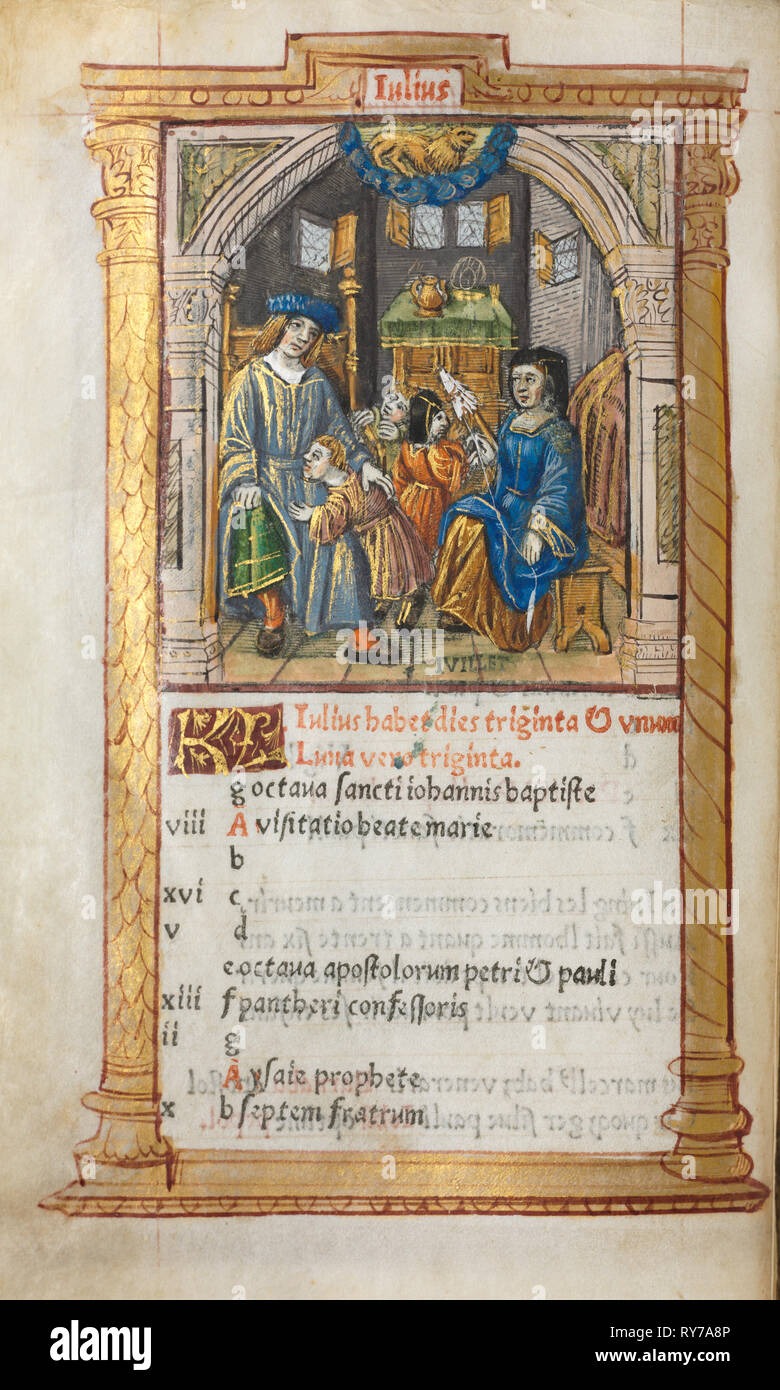 Iulius
IVILLET
KL Iulius habet dies triginta & vnum
Luna vero triginta.
g octaua sancti iohannis baptiste
viii A visitatio beate marie
b
xvi c
v d
e octaua apostolorum petri & pauli
xiii f pantheri confessoris
ii g
A ysaie prophete
x b septem fratrum
alamy
Image ID: RY7A8P
www.alamy.com